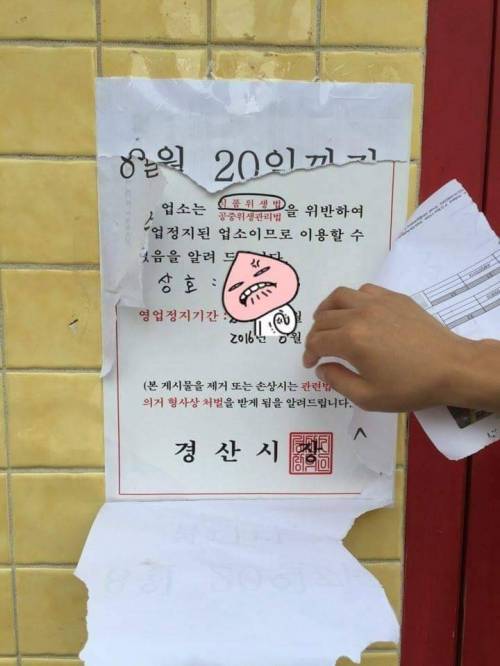 8월 20일까지
업소는 식품위생법
공중위생관리법 을 위반하여
업정지된 업소이므로 이용할 수
음을 알려
상호 :
영업정지기간 :
2016년 월
(본 게시물을 제거 또는 손상시는 관련법
의거 형사상 처벌을 받게 됨을 알려드립니다.
경산시장